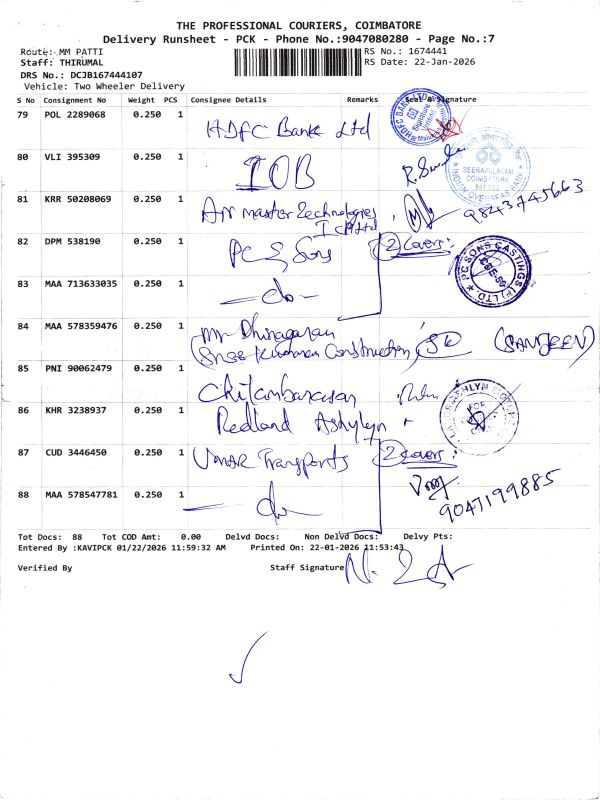 THE PROFESSIONAL COURIERS, COIMBATORE
Delivery Runsheet - PCK - Phone No.:9047080280 - Page No.:7
Route: MM PATTI
RS No.: 1674441
Staff: THIRUMAL
RS Date: 22-Jan-2026
DRS No.: DCJB167444107
Vehicle: Two Wheeler Delivery
S No Consignment No Weight PCS Consignee Details Remarks Seal & Signature
79 POL 2289068 0.250 1 HDFC Bank Ltd
80 VLI 395309 0.250 1 IOB
SEERAPALAYAM
COIMBATORE
INDIAN OVERSEAS BANK
81 KRR 50208069 0.250 1 Technologies
9843745663
82 DPM 538190 0.250 1 PC S Sons 2 Covers:
PC SONS CASTINGS (P) LTD.
83 MAA 713633035 0.250 1 -do-
84 MAA 578359476 0.250 1 Mr Construction (SANJEEN)
85 PNI 90062479 0.250 1
86 KHR 3238937 0.250 1 Redland Ashlyn
87 CUD 3446450 0.250 1 Transports 2 Covers:
9047199885
88 MAA 578547781 0.250 1 -do-
Tot Docs: 88 Tot COD Amt: 0.00 Delvd Docs: Non Delvd Docs: Delvy Pts:
Entered By :KAVIPCK 01/22/2026 11:59:32 AM Printed On: 22-01-2026 11:53:43
Verified By Staff Signature